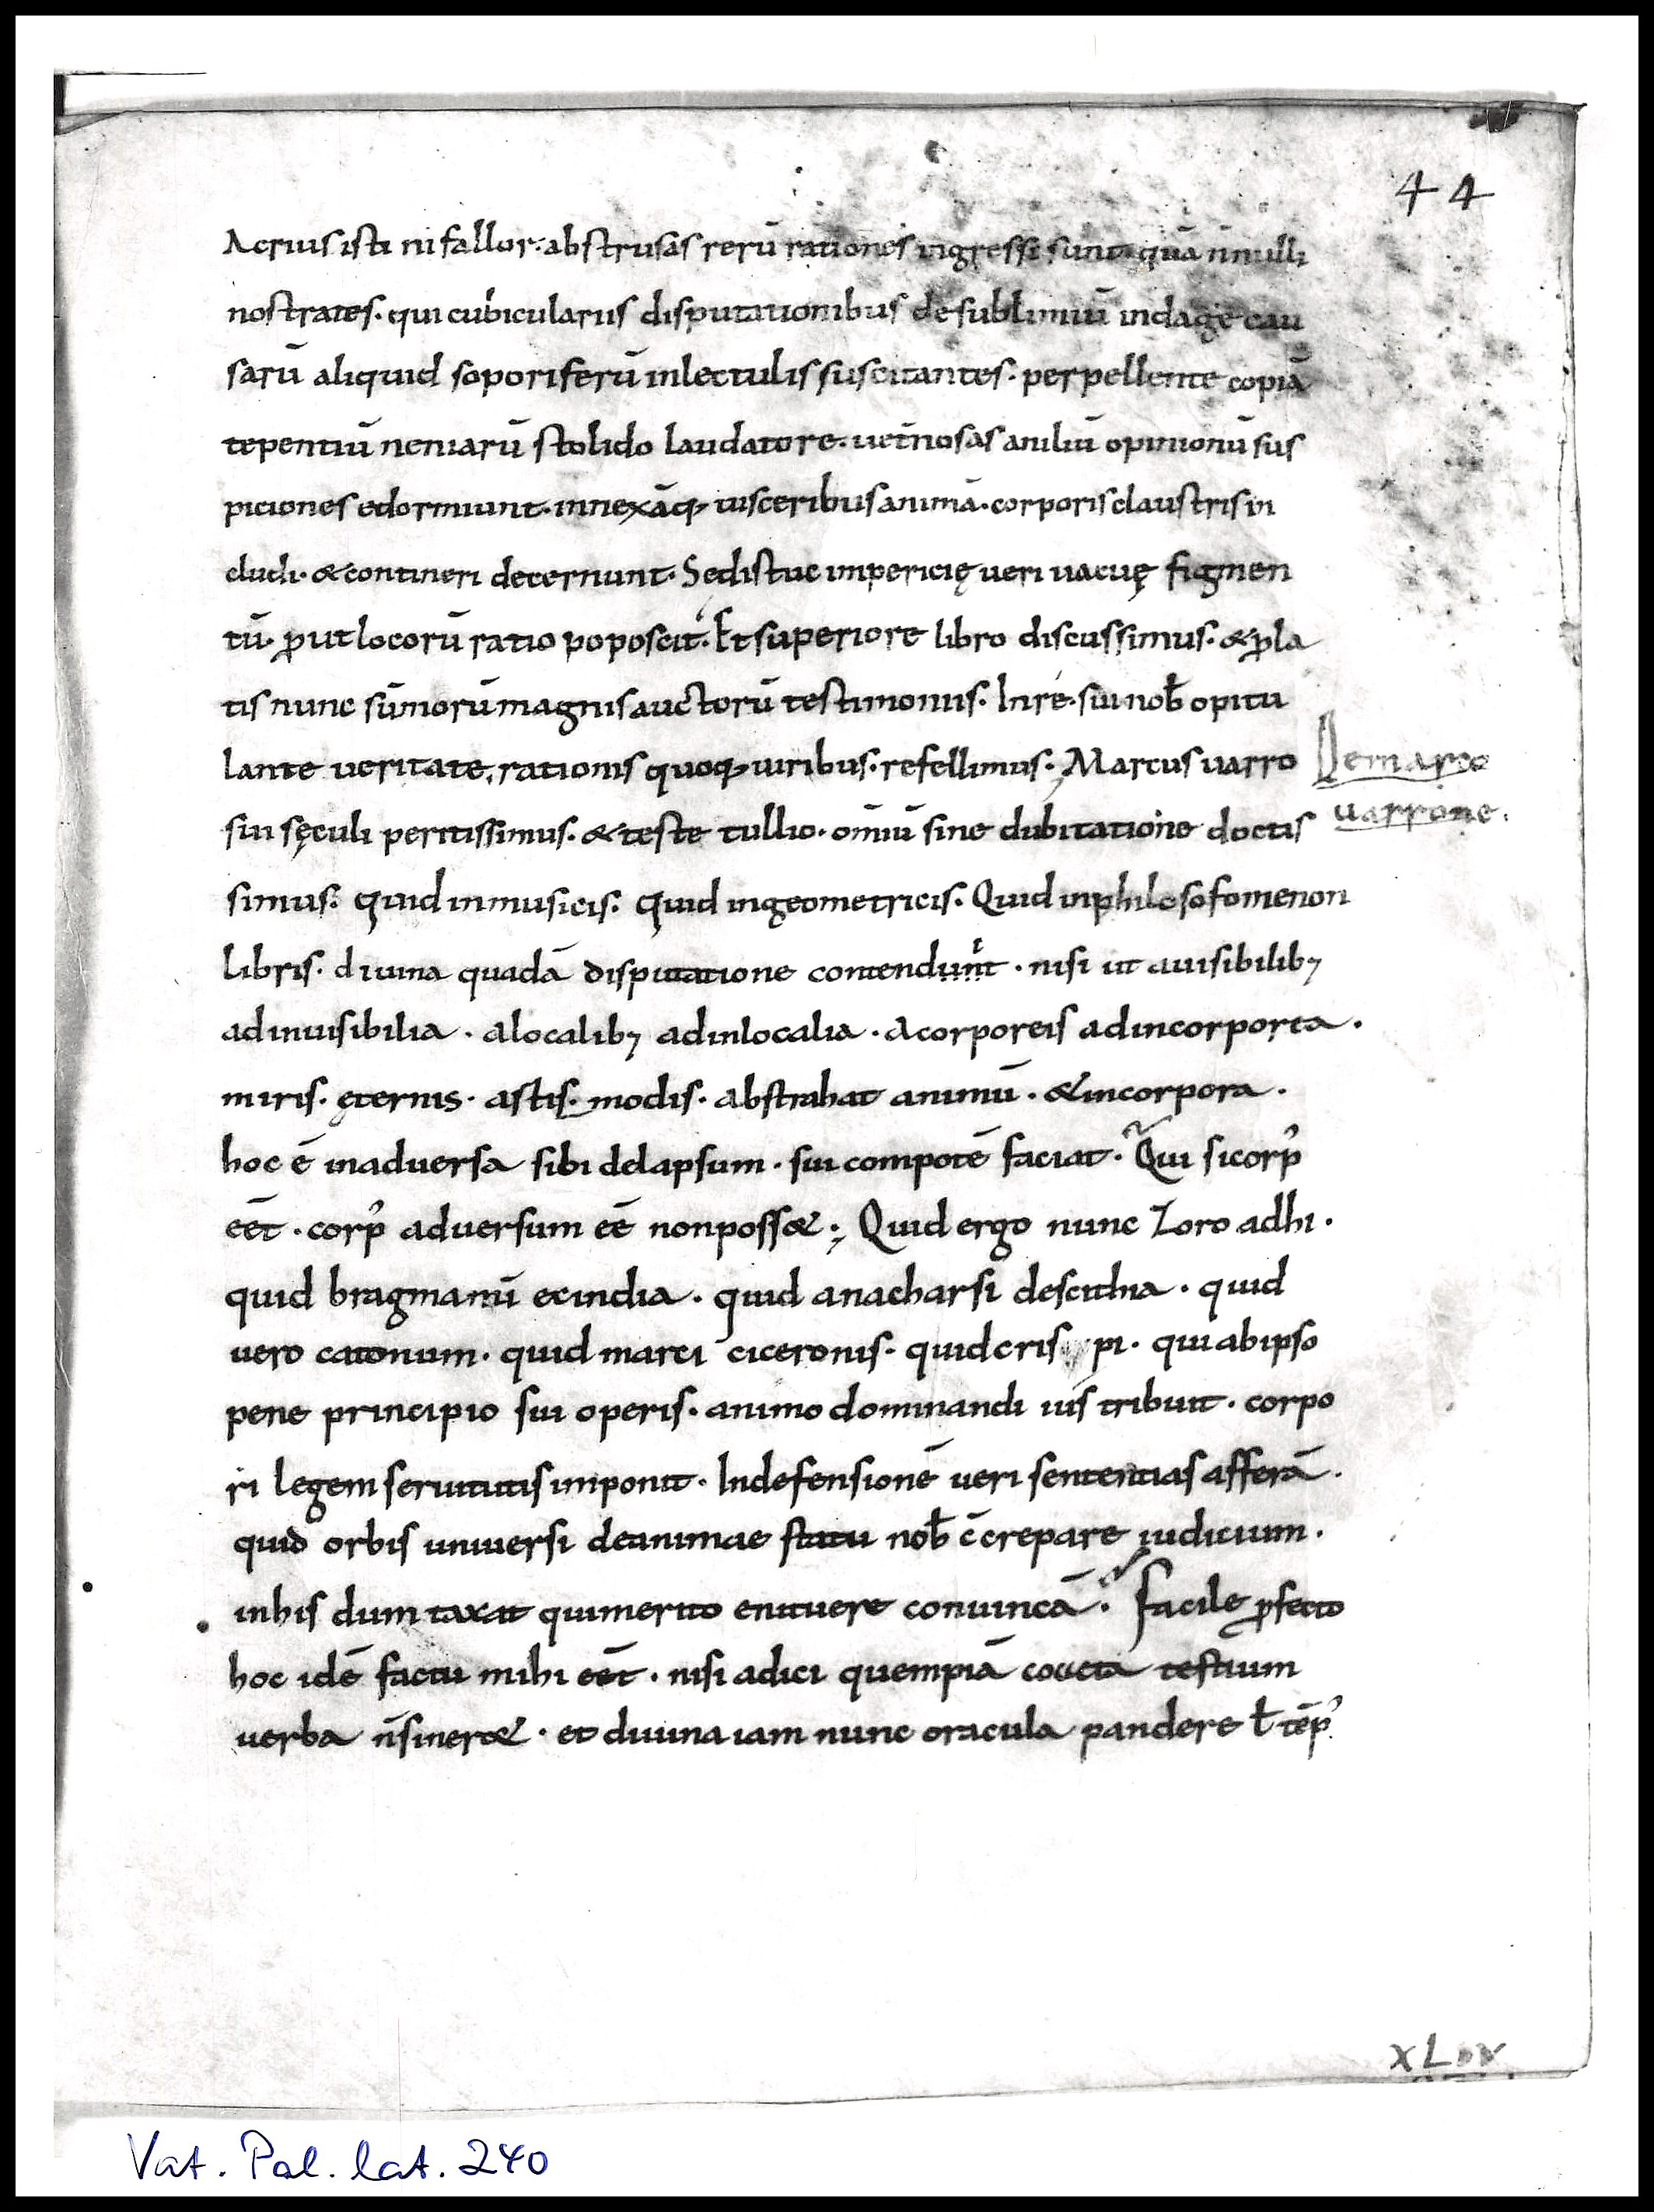 44
Acrius isti ni fallor. abstrusas rerū rationes ingressi sunt quā n̄nulli
nostrates. qui cubiculariis disputationibus de sublimiū indage cau
sarū aliquid soporiferū in lectulis suscitantes. perpellente copiā
tepentiū neniarū stolido laudatore. uet̄nosas aniliū opinionū sus
piciones edormiunt. innexāq; uisceribus animā. corporis claustris in
cludi. & contineri decernunt. Sed istuc impericię ueri uacuę figmen
tū. ꝓut locorū ratio poposcit. Et superiore libro discussimus. & ꝓla
tis nunc sūmorū magnis auctorū testimoniis. In re. sui nob̄ opitu
lante ueritate, rationis quoq; uiribus. refellimus. Marcus uarro
De marco
uarrone.
sui sęculi peritissimus. & teste tullio. om̄iū sine dubitatione doctis
simus. quid in musicis. quid in geometricis. Quid in philosofomenon
libris. diuina quadā disputatione contendunt. nisi ut a uisibilib;
ad inuisibilia. a localib; ad inlocalia. a corporeis ad incorporea.
miris. ęternis. astis. modis. abstrahat animū. & incorpora.
hoc ē in aduersa sibi delapsum. sui compotē faciat. Qui si corp᾽
eēt. corp᾽ aduersum eē non poss&; Quid ergo nunc Zoro adhi.
quid bragmanū ec india. quid anacharsi de scithia. quid
uero catonum. quid marci ciceronis. quid cris pi. qui ab ipso
pene principio sui operis. animo dominandi ius tribuit. corpo
ri legem seruitutis imponit. In defensionē ueri sententias afferā.
quid orbis uniuersi de animae statu nob̄ c̄crepare iudicium.
in his dum taxat qui merito enituere conuincā. Facile ꝓfecto
hoc idē factu mihi eēt. nisi adici quempiā coucta testium
uerba n̄ siner&. et diuina iam nunc oracula pandere ł tēp᾽
XLIV
Vat. Pal. lat. 240